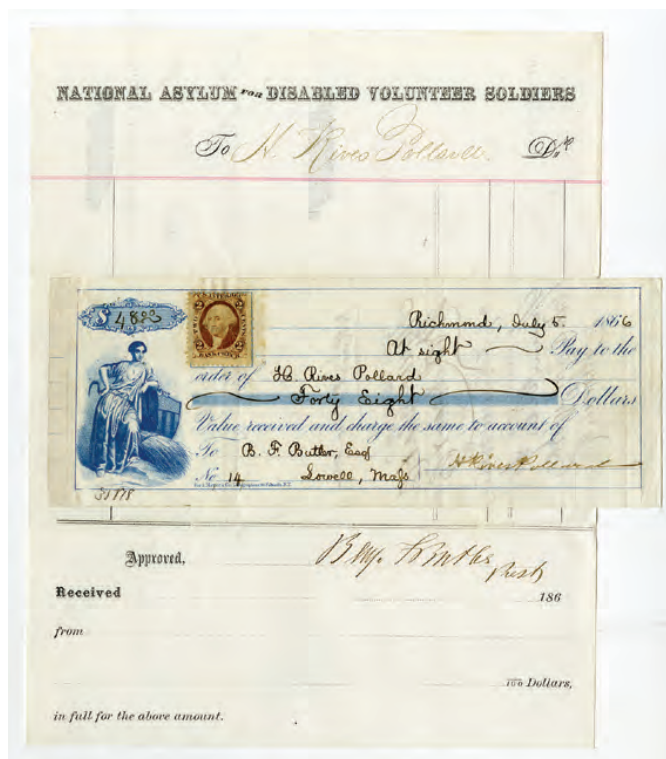 NATIONAL ASYLUM FOR DISABLED VOLUNTEER SOLDIERS
To H. Rives Pollard. Dr.
$ 48
Richmond, July 5. 1866
At sight Pay to the
order of H. Rives Pollard
Forty Eight Dollars
Value received and charge the same to account of
To B. F. Butler, Esq
No 14 Lowell, Mass
H Rives Pollard
Approved,
Received 186
from
100 Dollars,
in full for the above amount.